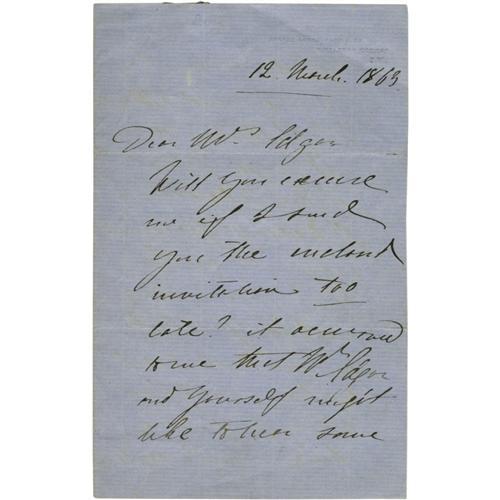 12. March. 1863.
Dear Mrs Edgar
Will you excuse
me if I send
you the enclosed
invitation too
late? it occurred
to me that Mr Edgar
and yourself might
like to hear some